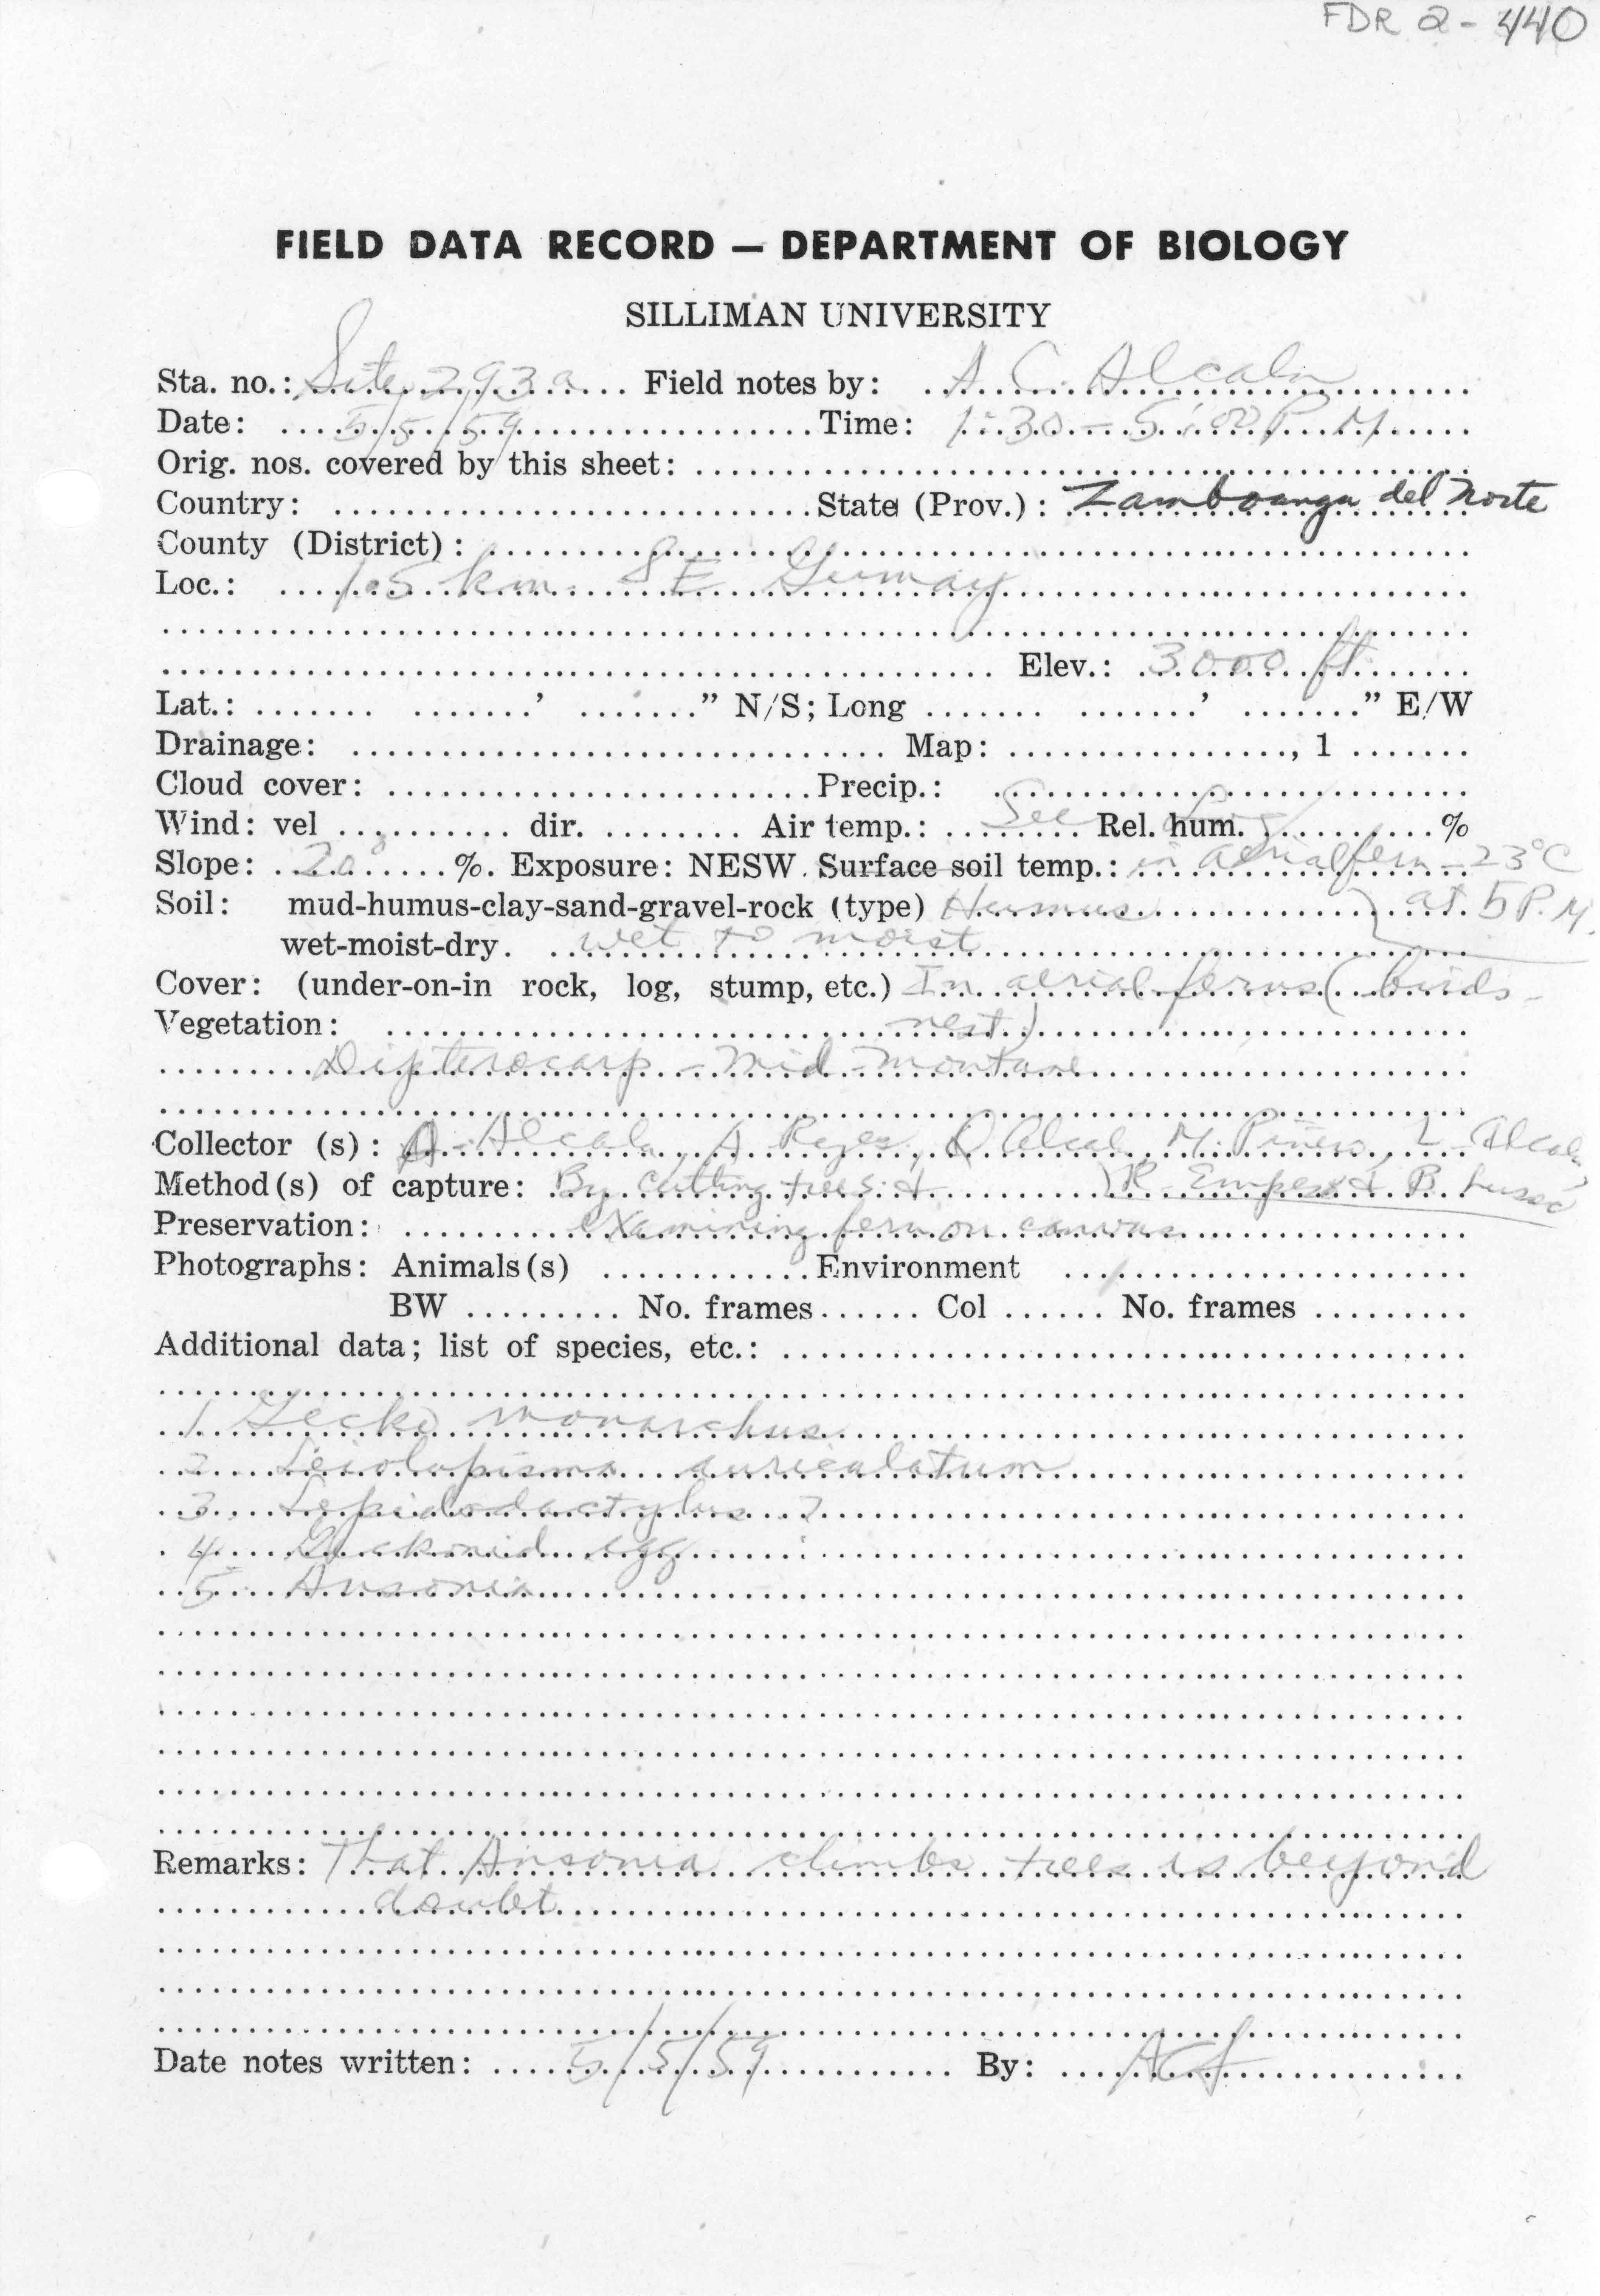 FDR 2-440
FIELD DATA RECORD — DEPARTMENT OF BIOLOGY
SILLIMAN UNIVERSITY
Sta. no.: Site 293a Field notes by: A. C. Alcala
Date: 5/5/59 Time: 1:30 - 5:00 P.M
Orig. nos. covered by this sheet:
Country: State (Prov.): Zamboanga del Norte
County (District):
Loc.: 1.5 km. SE Gumay
Elev.: 3000 ft.
Lat.: ' " N/S; Long ' " E/W
Drainage: Map: , 1
Cloud cover: Precip.:
Wind: vel dir. Air temp.: See Rel. hum. %
Slope: 20° %. Exposure: NESW. Surface soil temp.: in aerial fern - 23°C
Soil: mud-humus-clay-sand-gravel-rock (type) Humus at 5 P.M.
wet-moist-dry. wet to moist
Cover: (under-on-in rock, log, stump, etc.) In aerial ferns (birds-
Vegetation: nest)
Dipterocarp - Mid-montane
Collector (s): A. Alcala, A. Reyes, Q Alcala, M. Pinero, L. Alcala,
Method(s) of capture: By cutting trees & R. Empeso & B.
Preservation: examining fern on canvas
Photographs: Animals(s) Environment
BW No. frames Col No. frames
Additional data; list of species, etc.:
1 Gecko monarchus
2 Leiolopisma auriculatum
3 Lepidodactylus ?
4 Geckonid egg
5 Ansonia
Remarks: That Ansonia climbs trees is beyond
doubt
Date notes written: 5/5/59 By: ACA